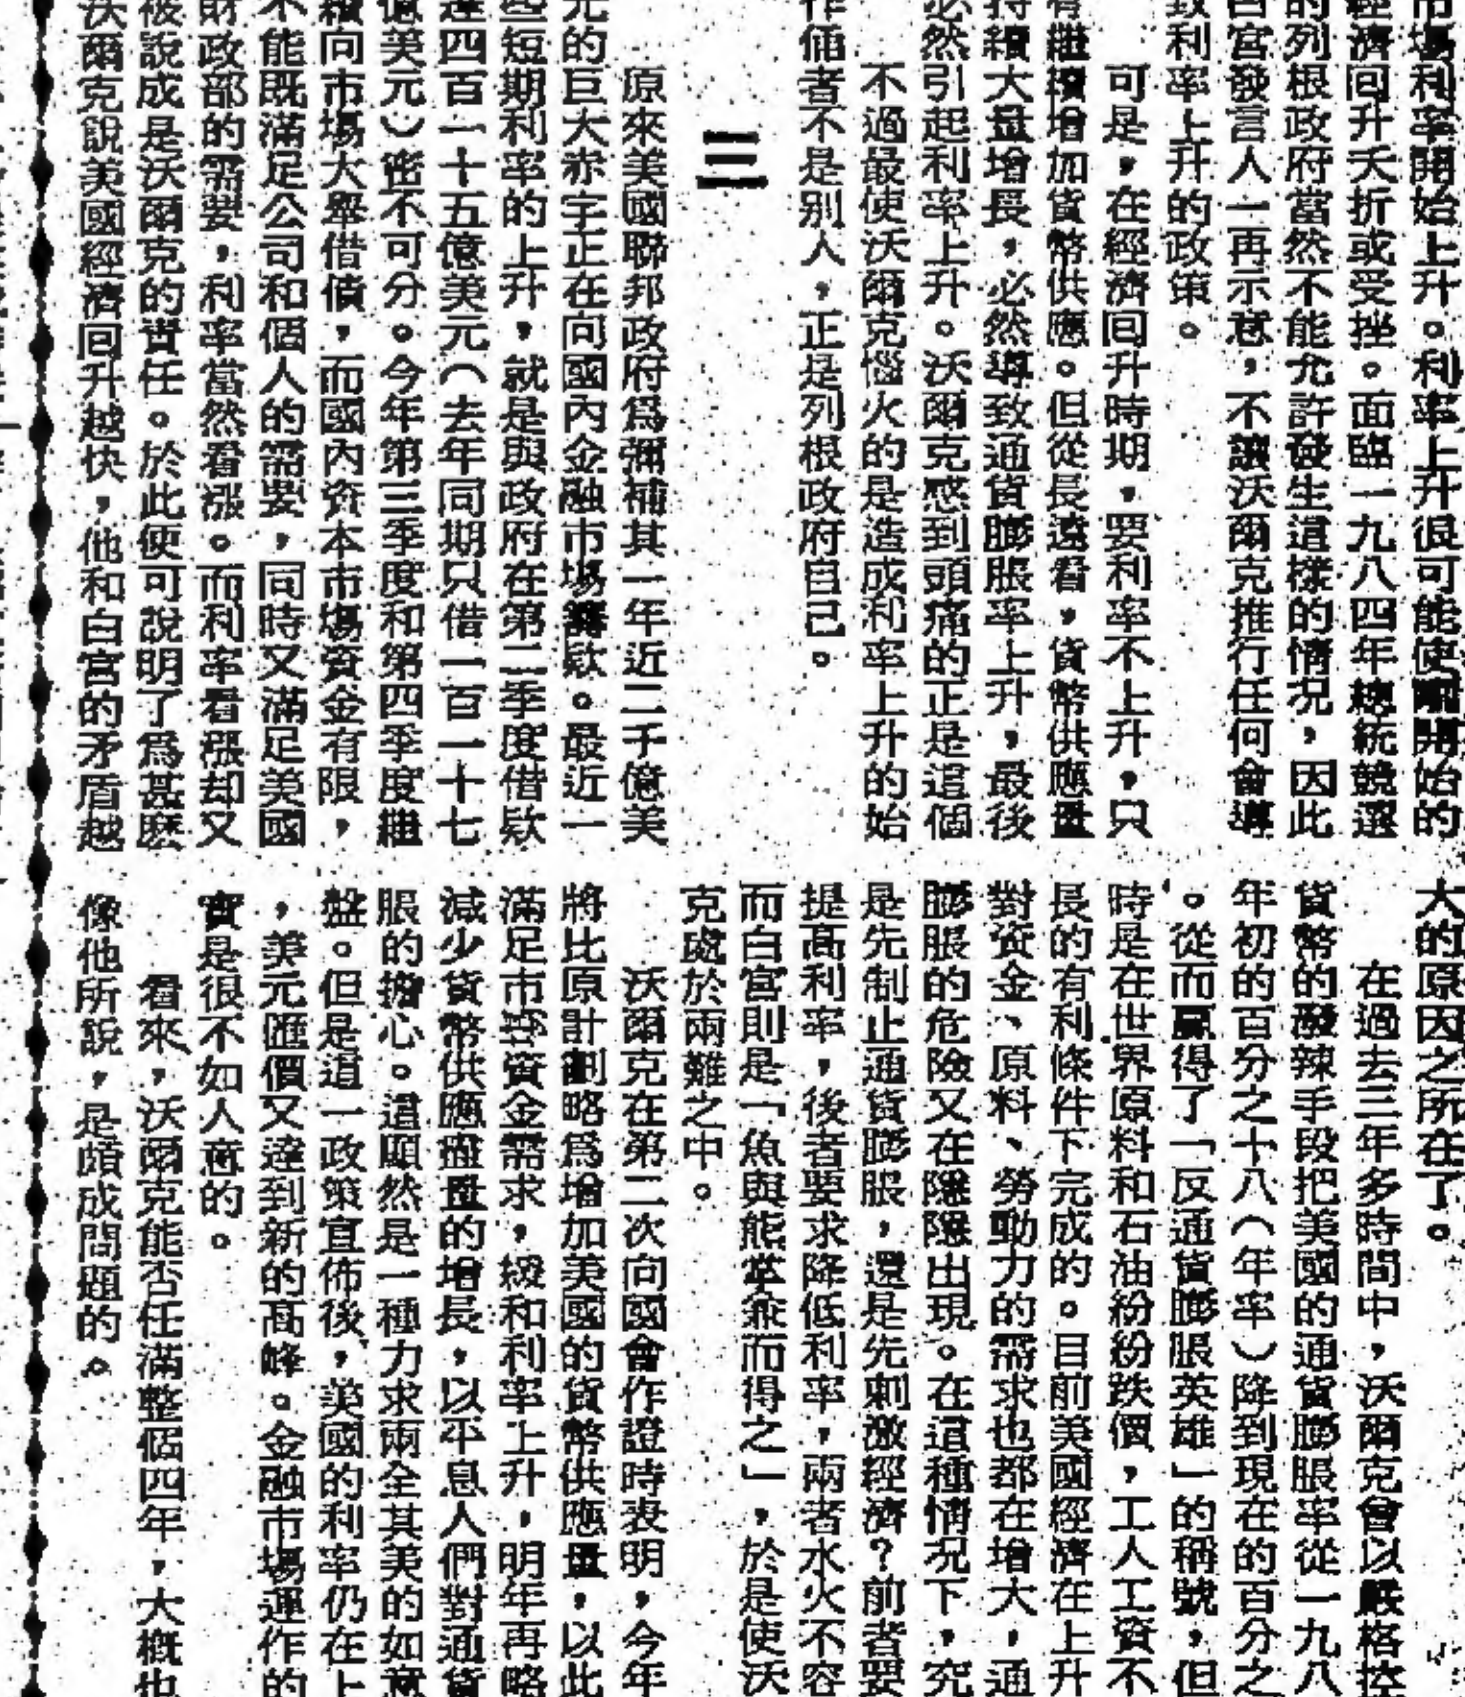 市場利率開始上升。利率上升很可能使剛開始的
經濟回升夭折或受挫。面臨一九八四年總統競選
的列根政府當然不能允許發生這樣的情況，因此
白宮發言人一再示意，不讓沃爾克推行任何會導
致利率上升的政策。
可是，在經濟回升時期，要利率不上升，只
有繼續增加貨幣供應。但從長遠看，貨幣供應量
持續大量增長，必然導致通貨膨脹率上升，最後
必然引起利率上升。沃爾克感到頭痛的正是這個
不過最使沃爾克惱火的是造成利率上升的始
作俑者不是別人，正是列根政府自己。
三
原來美國聯邦政府爲彌補其一年近二千億美
元的巨大赤字正在向國內金融市場籌款。最近一
些短期利率的上升，就是與政府在第二季度借款
達四百一十五億美元（去年同期只借一百一十七
億美元）密不可分。今年第三季度和第四季度繼
續向市場大舉借債，而國內資本市場資金有限，
不能既滿足公司和個人的需要，同時又滿足美國
財政部的需要，利率當然看漲。而利率看漲却又
被說成是沃爾克的責任。於此便可說明了爲甚麽
沃爾克說美國經濟回升越快，他和白宮的矛盾越
大的原因之所在了。
在過去三年多時間中，沃爾克會以嚴格控
貨幣的潑辣手段把美國的通貨膨脹率從一九八
年初的百分之十八（年率）降到現在的百分之
。從而贏得了「反通貨膨脹英雄」的稱號，但
時是在世界原料和石油紛紛跌價，工人工資不
長的有利條件下完成的。目前美國經濟在上升
對資金、原料、勞動力的需求也都在增大，通
膨脹的危險又在隱隱出現。在這種情況下，究
是先制止通貨膨脹，還是先刺激經濟？前者要
提高利率，後者要求降低利率，兩者水火不容
而白宮則是「魚與熊掌兼而得之」，於是使沃
克處於兩難之中。
沃爾克在第二次向國會作證時表明，今年
將比原計劃略爲增加美國的貨幣供應量，以此
滿足市場資金需求，緩和利率上升，明年再略
減少貨幣供應量的增長，以平息人們對通貨
脹的擔心。這顯然是一種力求兩全其美的如意
盤。但是這一政策宣佈後，美國的利率仍在上
，美元匯價又達到新的高峰。金融市場運作的
實是很不如人意的。
看來，沃爾克能否任滿整個四年，大概也
像他所說，是頗成問題的。